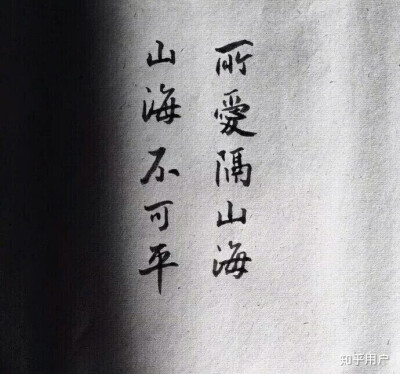 所愛隔山海
山海不可平
知乎用户